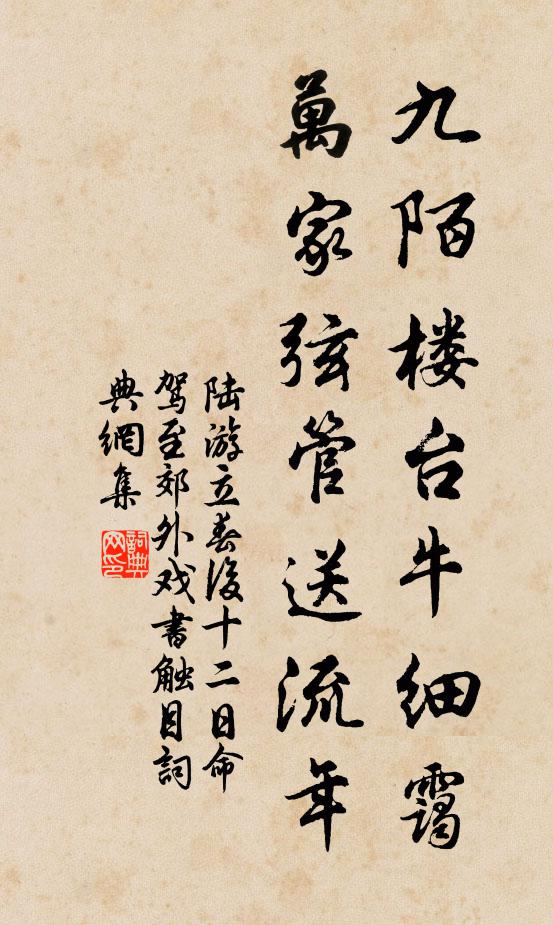 九陌楼台牛细霭
萬家弦管送流年
陆游立春後十二日命
驾至郊外戏書触目詞
典網集
詞典网印